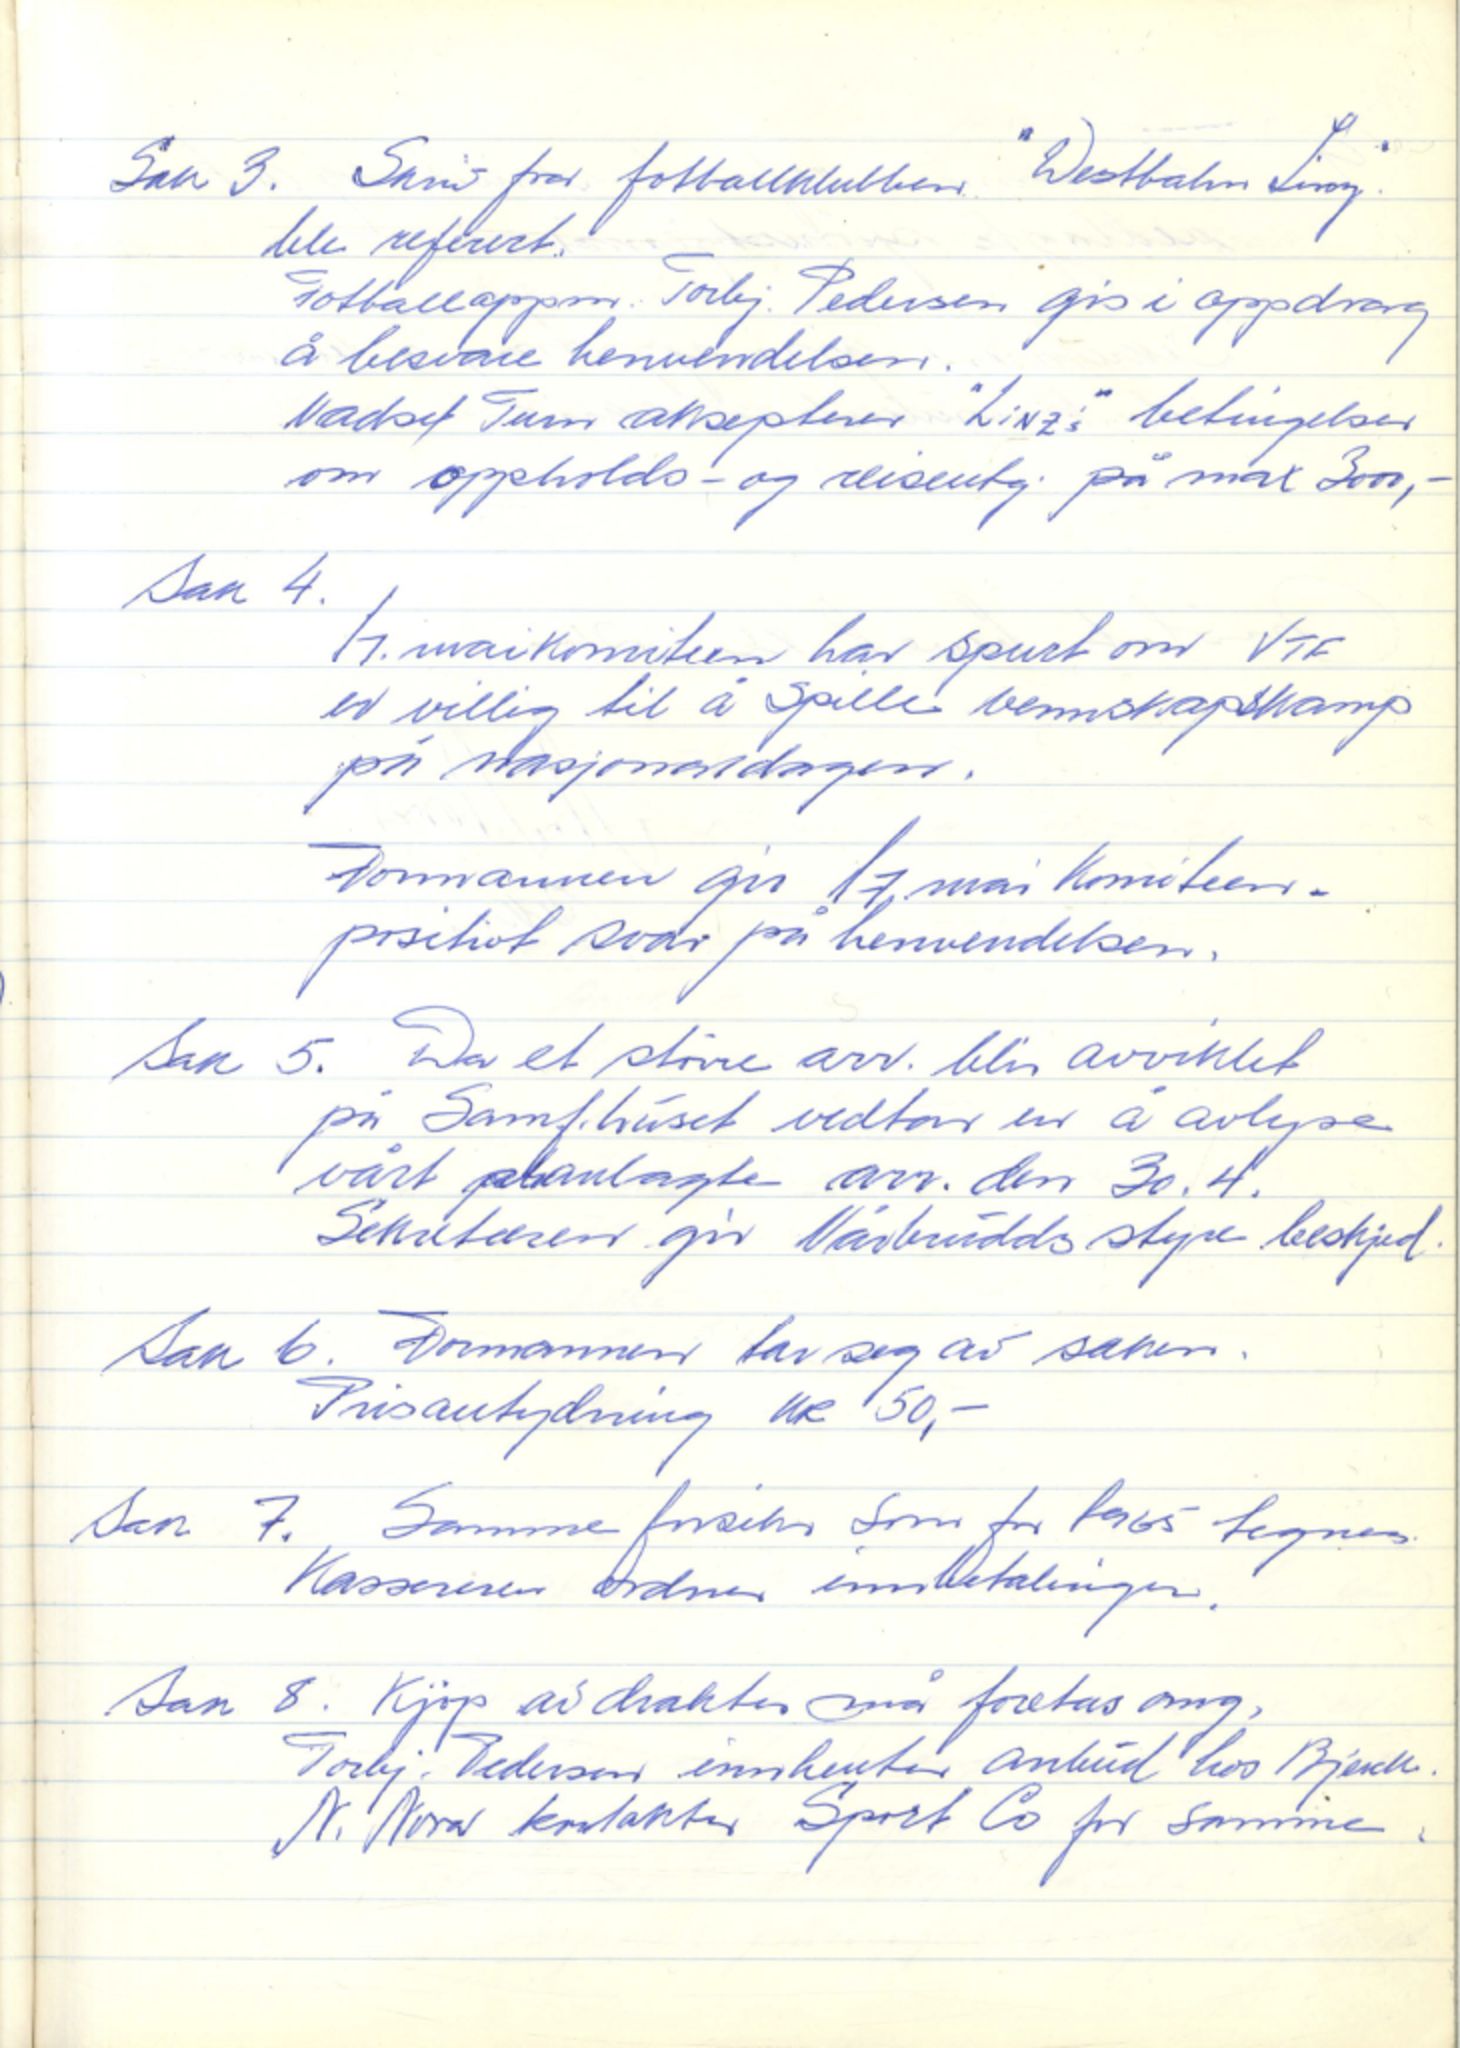 Sak 3. Skriv fra fotballklubben "Westbahn Linz"
ble referert.
Fotballoppm. Torbj. Pedersen gis i oppdrag
å besvare henvendelsen.
Vadsø Turn aksepterer "LiNZ's" betingelser
om oppholds- og reiseutg. på max 3000,-
Sak 4.
17. maikomiteen har spurt om VTF
er villig til å spille vennskapskamp
på nasjonaldagen.
Formannen gir 17. mai komiteen
positivt svar på henvendelsen.
Sak 5. Da et større arr. blir avviklet
på Samf.huset vedtar en å avlyse
vårt planlagte arr. den 30.4.
Sekretæren gir Vårbrudds styre beskjed.
Sak 6. Formannen tar seg av saken.
Prisantydning kr 50,-
Sak 7. Samme forsikr. som for 1965 tegnes.
Kassereren ordner innbetalingen.
Sak 8. Kjøp av drakter må foretas omg.
Torbj. Pedersen innhenter anbud hos
N. Nora kontakter Sport Co for samme.